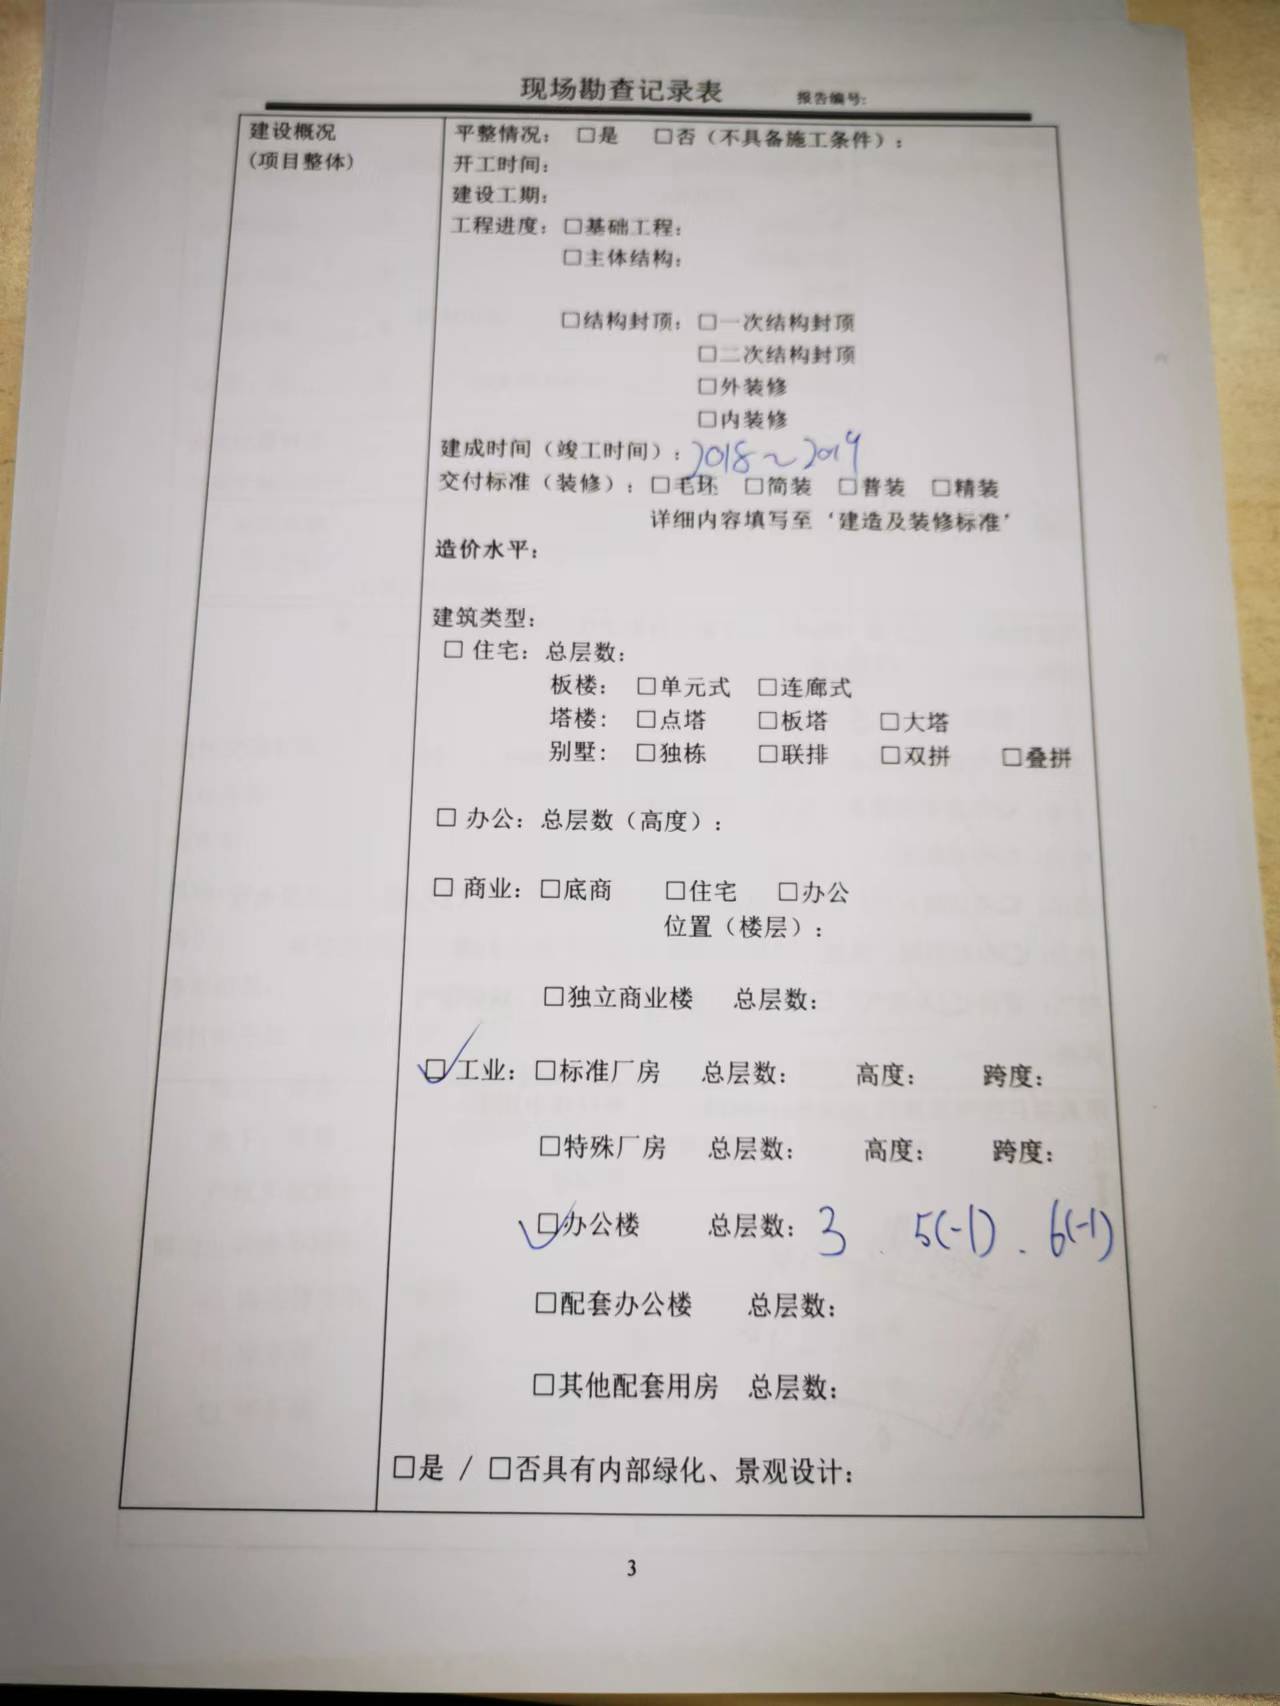 现场勘查记录表 报告编号:
建设概况
(项目整体)
平整情况: □是 □否(不具备施工条件):
开工时间:
建设工期:
工程进度: □基础工程:
□主体结构:
□结构封顶: □一次结构封顶
□二次结构封顶
□外装修
□内装修
建成时间(竣工时间): 2018~2019
交付标准(装修): □毛坯 □简装 □普装 □精装
详细内容填写至‘建造及装修标准’
造价水平:
建筑类型:
□ 住宅: 总层数:
板楼: □单元式 □连廊式
塔楼: □点塔 □板塔 □大塔
别墅: □独栋 □联排 □双拼 □叠拼
□ 办公: 总层数(高度):
□ 商业: □底商 □住宅 □办公
位置(楼层):
□独立商业楼 总层数:
☑ 工业: □标准厂房 总层数: 高度: 跨度:
□特殊厂房 总层数: 高度: 跨度:
☑办公楼 总层数: 3 . 5(-1) . 6(-1)
□配套办公楼 总层数:
□其他配套用房 总层数:
□是 / □否具有内部绿化、景观设计:
3